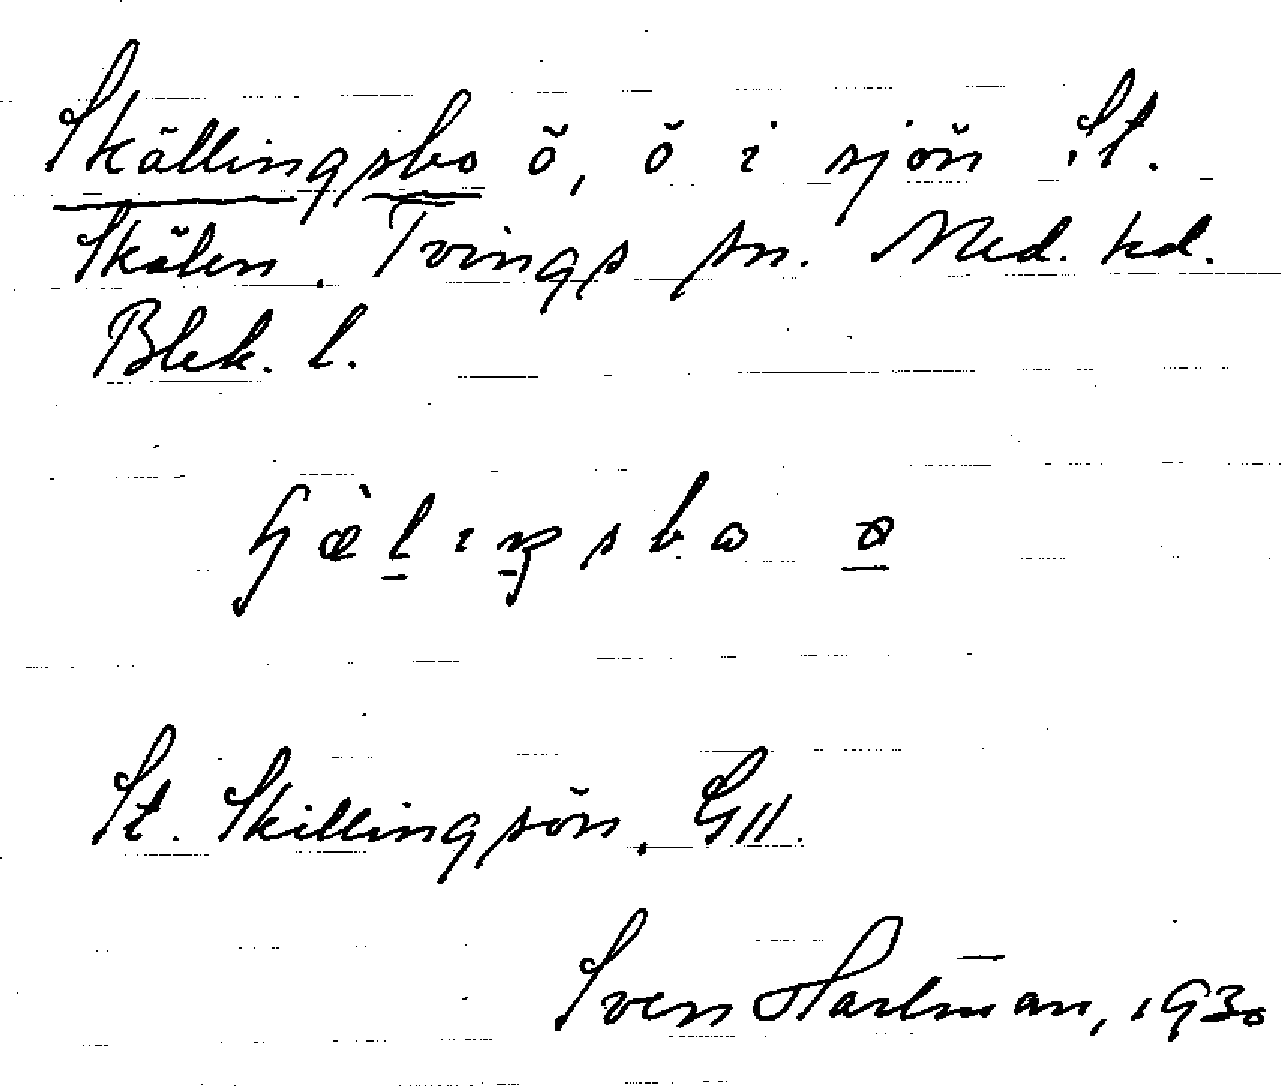 Skällingsbo ö, ö i sjön St.
Skälen. Tvings sn. Med. hd.
Blek. l.
St. Skillingsön. GII.
Sven Hartman, 1930